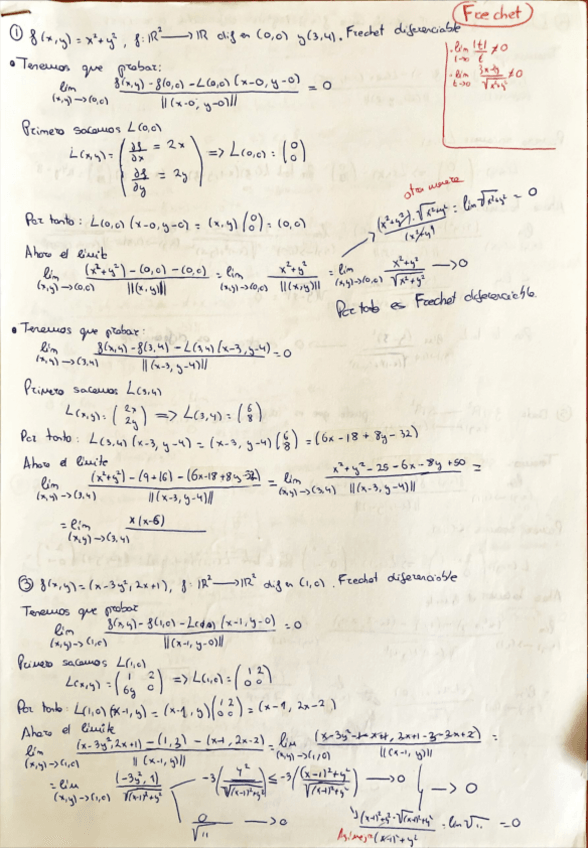 Frechet
① f(x,y) = x²+y², f: ℝ² → ℝ dif en (0,0) y (3,4). Frechet diferenciable
· lim t→0 |t|/t ≠ 0
· lim t→0 3x-y/√x²+y² ≠ 0
• Tenemos que probar:
lim (x,y)→(0,0) f(x,y) - f(0,0) - L(0,0)(x-0, y-0) / ||(x-0, y-0)|| = 0
Primero sacamos L(0,0)
L(x,y) = (∂f/∂x = 2x ; ∂f/∂y = 2y) => L(0,0) = (0 ; 0)
otra manera
Por tanto: L(0,0)(x-0, y-0) = (x,y)(0 ; 0) = (0,0)
(x²+y²)·√x²+y² / (x²+y²) = lim √x²+y² → 0
Ahora el límite
lim (x,y)→(0,0) (x²+y²) - (0,0) - (0,0) / ||(x,y)|| = lim (x,y)→(0,0) x²+y² / ||(x,y)|| = lim (x,y)→(0,0) x²+y² / √x²+y² → 0
Por tanto es Frechet diferenciable.
• Tenemos que probar:
lim (x,y)→(3,4) f(x,y) - f(3,4) - L(3,4)(x-3, y-4) / ||(x-3, y-4)|| = 0
Primero sacamos L(3,4)
L(x,y) = (2x ; 2y) => L(3,4) = (6 ; 8)
Por tanto: L(3,4)(x-3, y-4) = (x-3, y-4)(6 ; 8) = (6x-18 + 8y-32)
Ahora el límite
lim (x,y)→(3,4) (x²+y²) - (9+16) - (6x-18+8y-32) / ||(x-3, y-4)|| = lim (x,y)→(3,4) x²+y² - 25 - 6x - 8y + 50 / ||(x-3, y-4)|| =
= lim (x,y)→(3,4) x(x-6)
③ f(x,y) = (x-3y², 2x+1), f: ℝ² → ℝ² dif en (1,0). Frechet diferenciable
Tenemos que probar
lim (x,y)→(1,0) f(x,y) - f(1,0) - L(1,0)(x-1, y-0) / ||(x-1, y-0)|| = 0
Primero sacamos L(1,0)
L(x,y) = (1 2 ; 6y 0) => L(1,0) = (1 2 ; 0 0)
Por tanto: L(1,0)(x-1, y) = (x-1, y)(1 2 ; 0 0) = (x-1, 2x-2)
Ahora el límite
lim (x,y)→(1,0) (x-3y², 2x+1) - (1,3) - (x-1, 2x-2) / ||(x-1, y)|| = lim (x,y)→(1,0) (x-3y²-1-x+1, 2x+1-3-2x+2) / ||(x-1, y)|| =
= lim (x,y)→(1,0) (-3y², 1) / √(x-1)²+y²
-3(y² / √(x-1)²+y²) ≤ -3((x-1)²+y² / √(x-1)²+y²) → 0
→ 0
0 / √11 → 0
(x-1)²+y²·√(x-1)²+y² / (x-1)²+y² = lim √11 = 0